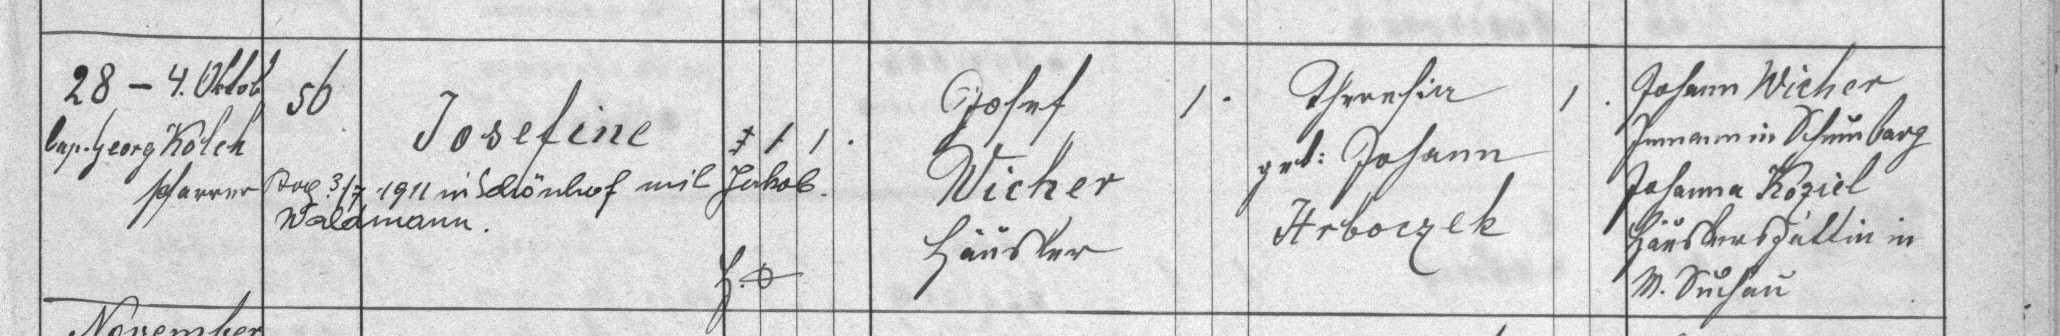 28 – 4. Oktob
56
bap. Georg Kolek
Pfarrer
Josefine
1 1
3/7 1911 in Schönhof mit Jakob
Waldmann.
Josef
Wicher
Häusler
1.
Theresia
geb: Johann
Hrboczek
1.
Johann Wicher
Inmann in Schumbarg
Johanna Koziel
Häuslersgattin in
M. Suchau
November